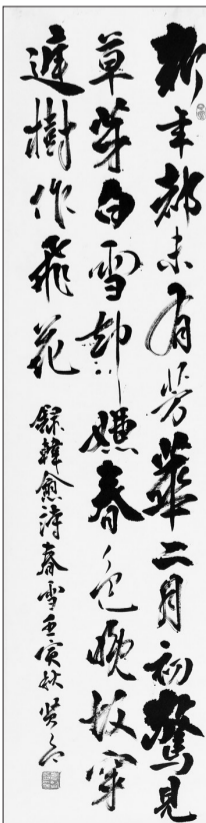 新年都未有芳華二月初驚見
草芽白雪却嫌春色晚故穿
庭樹作飛花
錄韓愈詩春雪壬寅秋